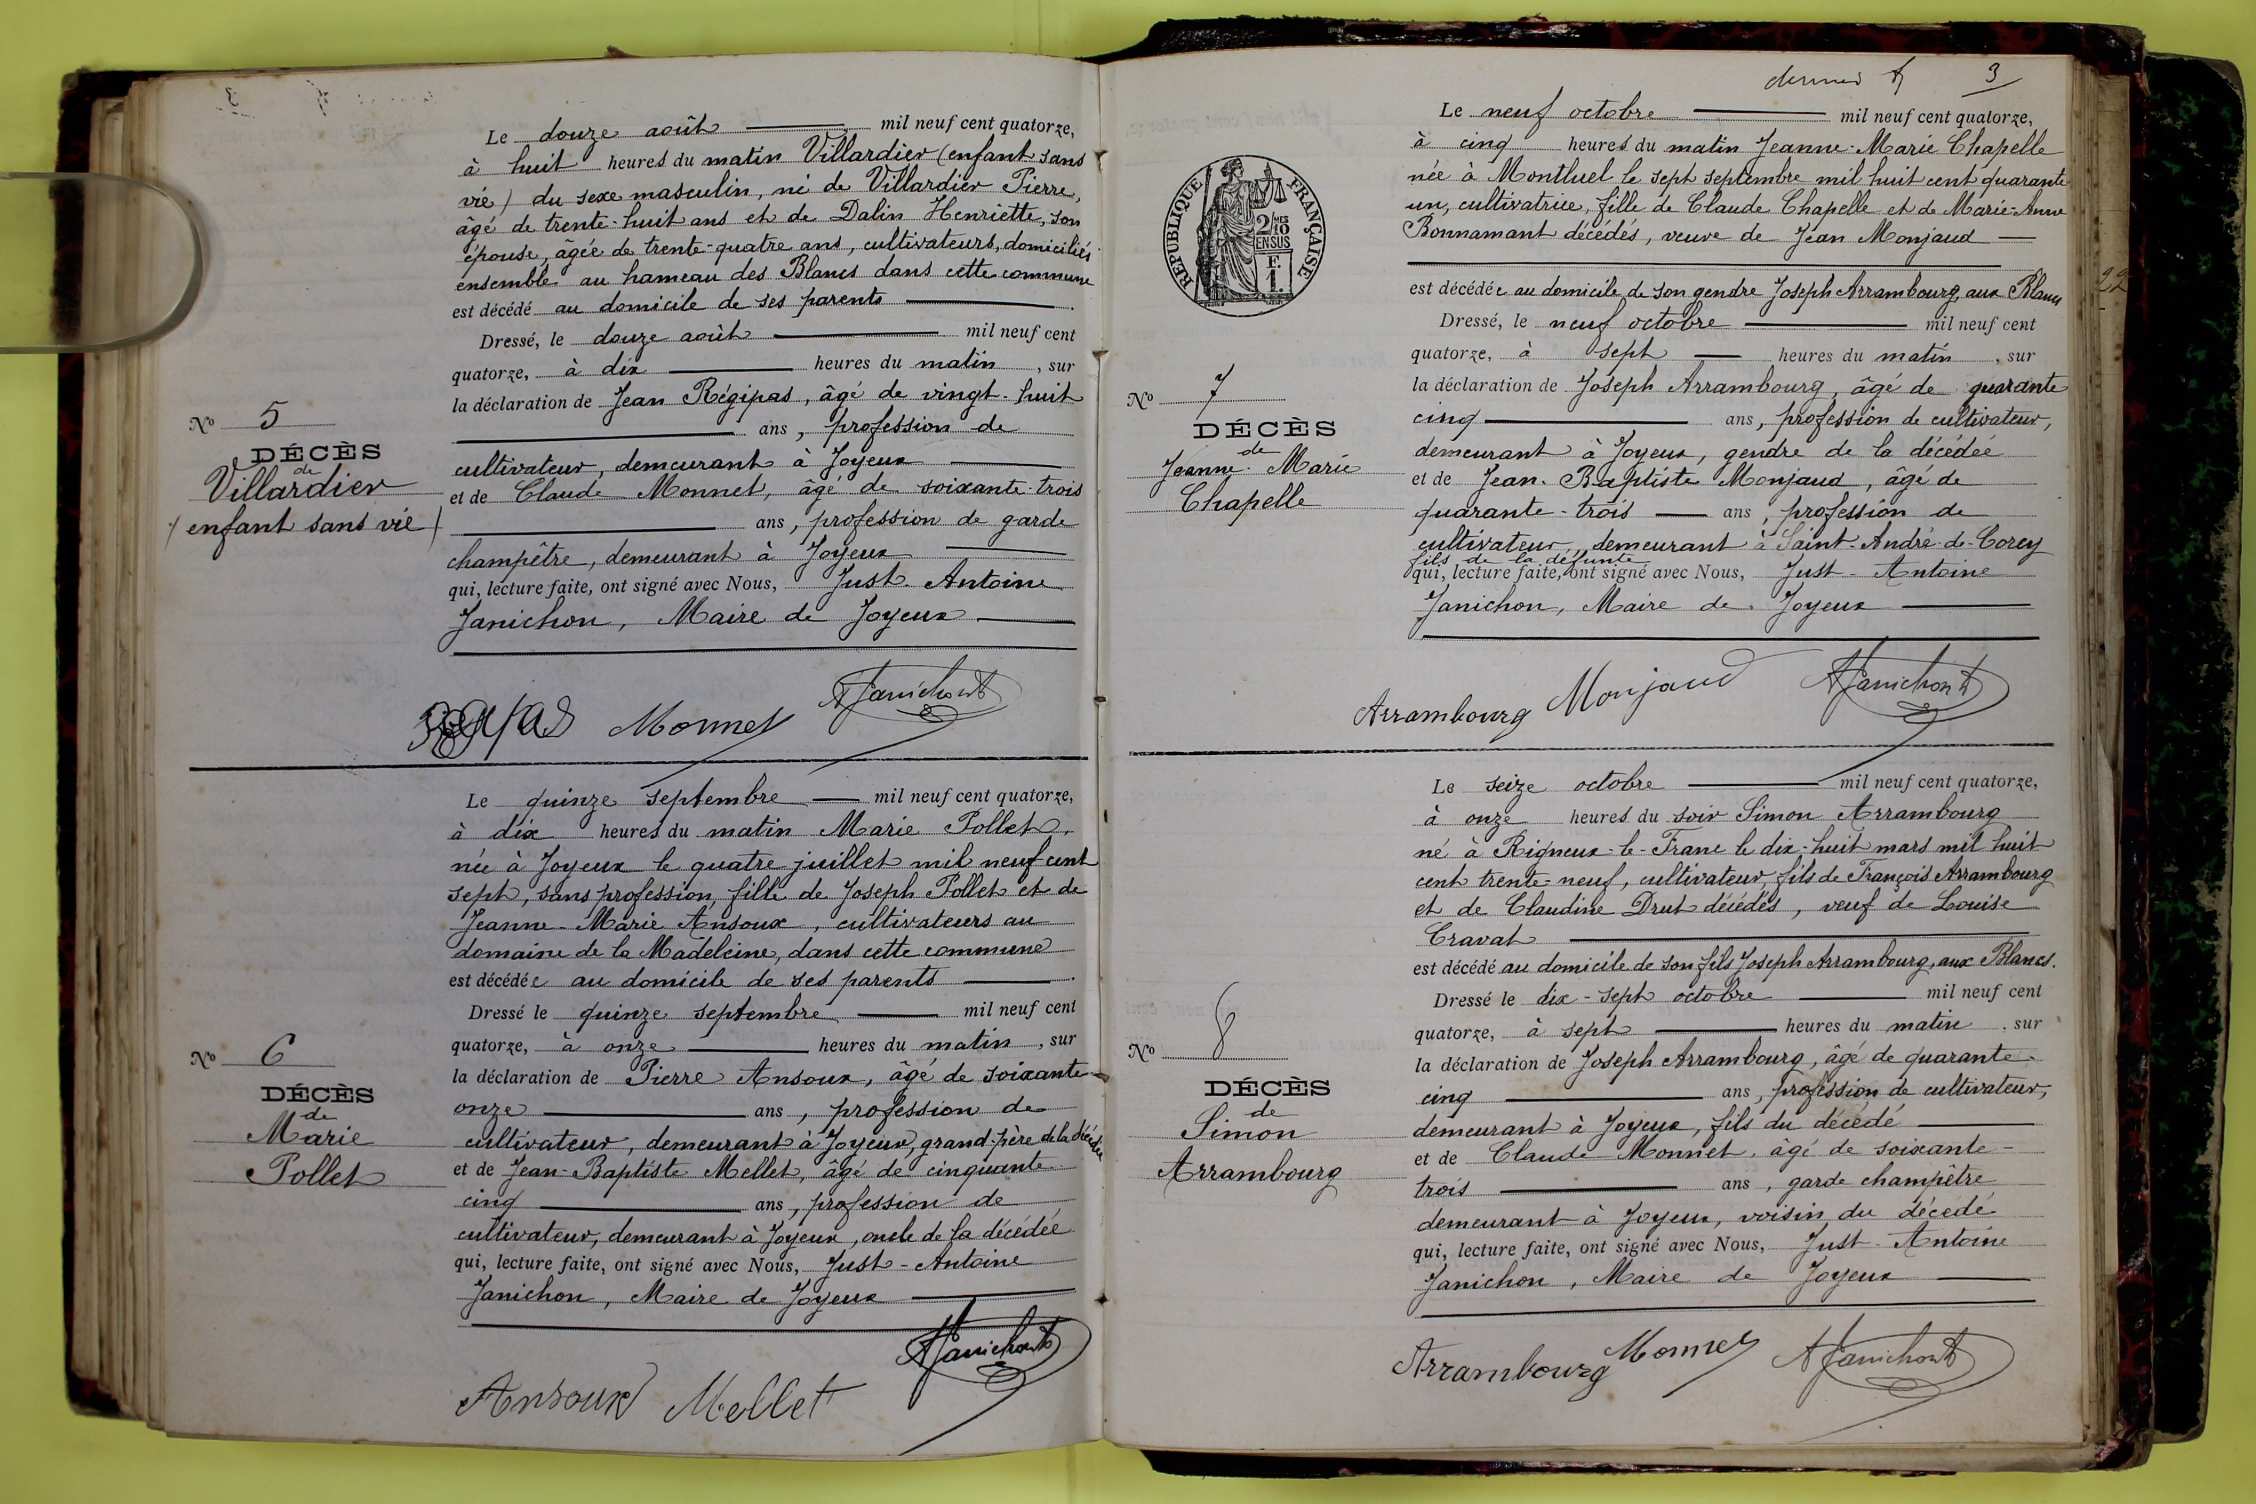 Le douze août mil neuf cent quatorze,
à huit heures du matin Villardier (enfant sans
vie) du sexe masculin, né de Villardier Pierre,
âgé de trente-huit ans et de Dalin Henriette, son
épouse, âgée de trente-quatre ans, cultivateurs, domiciliés
ensemble au hameau des Blancs dans cette commune
est décédé au domicile de ses parents
Dressé, le douze août mil neuf cent
quatorze, à dix heures du matin, sur
la déclaration de Jean Régipas, âgé de vingt-huit
ans, profession de
cultivateur, demeurant à Joyeux
et de Claude Monnet, âgé de soixante-trois
ans, profession de garde
champêtre, demeurant à Joyeux
qui, lecture faite, ont signé avec Nous, Just-Antoine
Janichon, Maire de Joyeux
No 5
DÉCÈS
de
Villardier
(enfant sans vie)
Monnet AJanichon
Le quinze septembre mil neuf cent quatorze,
à dix heures du matin Marie Pollet,
née à Joyeux le quatre juillet mil neuf cent
sept, sans profession, fille de Joseph Pollet et de
Jeanne-Marie Ansoux, cultivateurs au
domaine de la Madeleine, dans cette commune
est décédée au domicile de ses parents
Dressé le quinze septembre mil neuf cent
quatorze, à onze heures du matin, sur
la déclaration de Pierre Ansoux, âgé de soixante-
onze ans, profession de
cultivateur, demeurant à Joyeux, grand-père de la décédée
et de Jean-Baptiste Mellet, âgé de cinquante-
cinq ans, profession de
cultivateur, demeurant à Joyeux, oncle de la décédée
qui, lecture faite, ont signé avec Nous, Just-Antoine
Janichon, Maire de Joyeux
No 6
DÉCÈS
de
Marie
Pollet
AJanichon
Ansoux Mellet
3
Le neuf octobre mil neuf cent quatorze,
à cinq heures du matin Jeanne-Marie Chapelle
née à Montluel le sept septembre mil huit cent quarante
un, cultivatrice, fille de Claude Chapelle et de Marie-Anne
Bonnamant décédés, veuve de Jean Monjaud
est décédée au domicile de son gendre Joseph Arrambourg, aux Blancs
Dressé, le neuf octobre mil neuf cent
quatorze, à sept heures du matin, sur
la déclaration de Joseph Arrambourg, âgé de quarante
cinq ans, profession de cultivateur,
demeurant à Joyeux, gendre de la décédée
et de Jean-Baptiste Monjaud, âgé de
quarante-trois ans, profession de
cultivateur, demeurant à Saint-André-de-Corcy
fils de la défunte
qui, lecture faite, ont signé avec Nous, Just-Antoine
Janichon, Maire de Joyeux
RÉPUBLIQUE FRANÇAISE
2/10 MES
EN SUS
F.
1.
No 7
DÉCÈS
de
Jeanne-Marie
Chapelle
Arrambourg Monjaud AJanichon
Le seize octobre mil neuf cent quatorze,
à onze heures du soir Simon Arrambourg
né à Rigneux-le-Franc le dix-huit mars mil huit
cent trente-neuf, cultivateur, fils de François Arrambourg
et de Claudine Drut décédés, veuf de Louise
Cravat
est décédé au domicile de son fils Joseph Arrambourg, aux Blancs.
Dressé le dix-sept octobre mil neuf cent
quatorze, à sept heures du matin, sur
la déclaration de Joseph Arrambourg, âgé de quarante-
cinq ans, profession de cultivateur,
demeurant à Joyeux, fils du décédé
et de Claude Monnet, âgé de soixante-
trois ans, garde champêtre
demeurant à Joyeux, voisin du décédé
qui, lecture faite, ont signé avec Nous, Just-Antoine
Janichon, Maire de Joyeux
No 8
DÉCÈS
de
Simon
Arrambourg
Arrambourg Monnet AJanichon